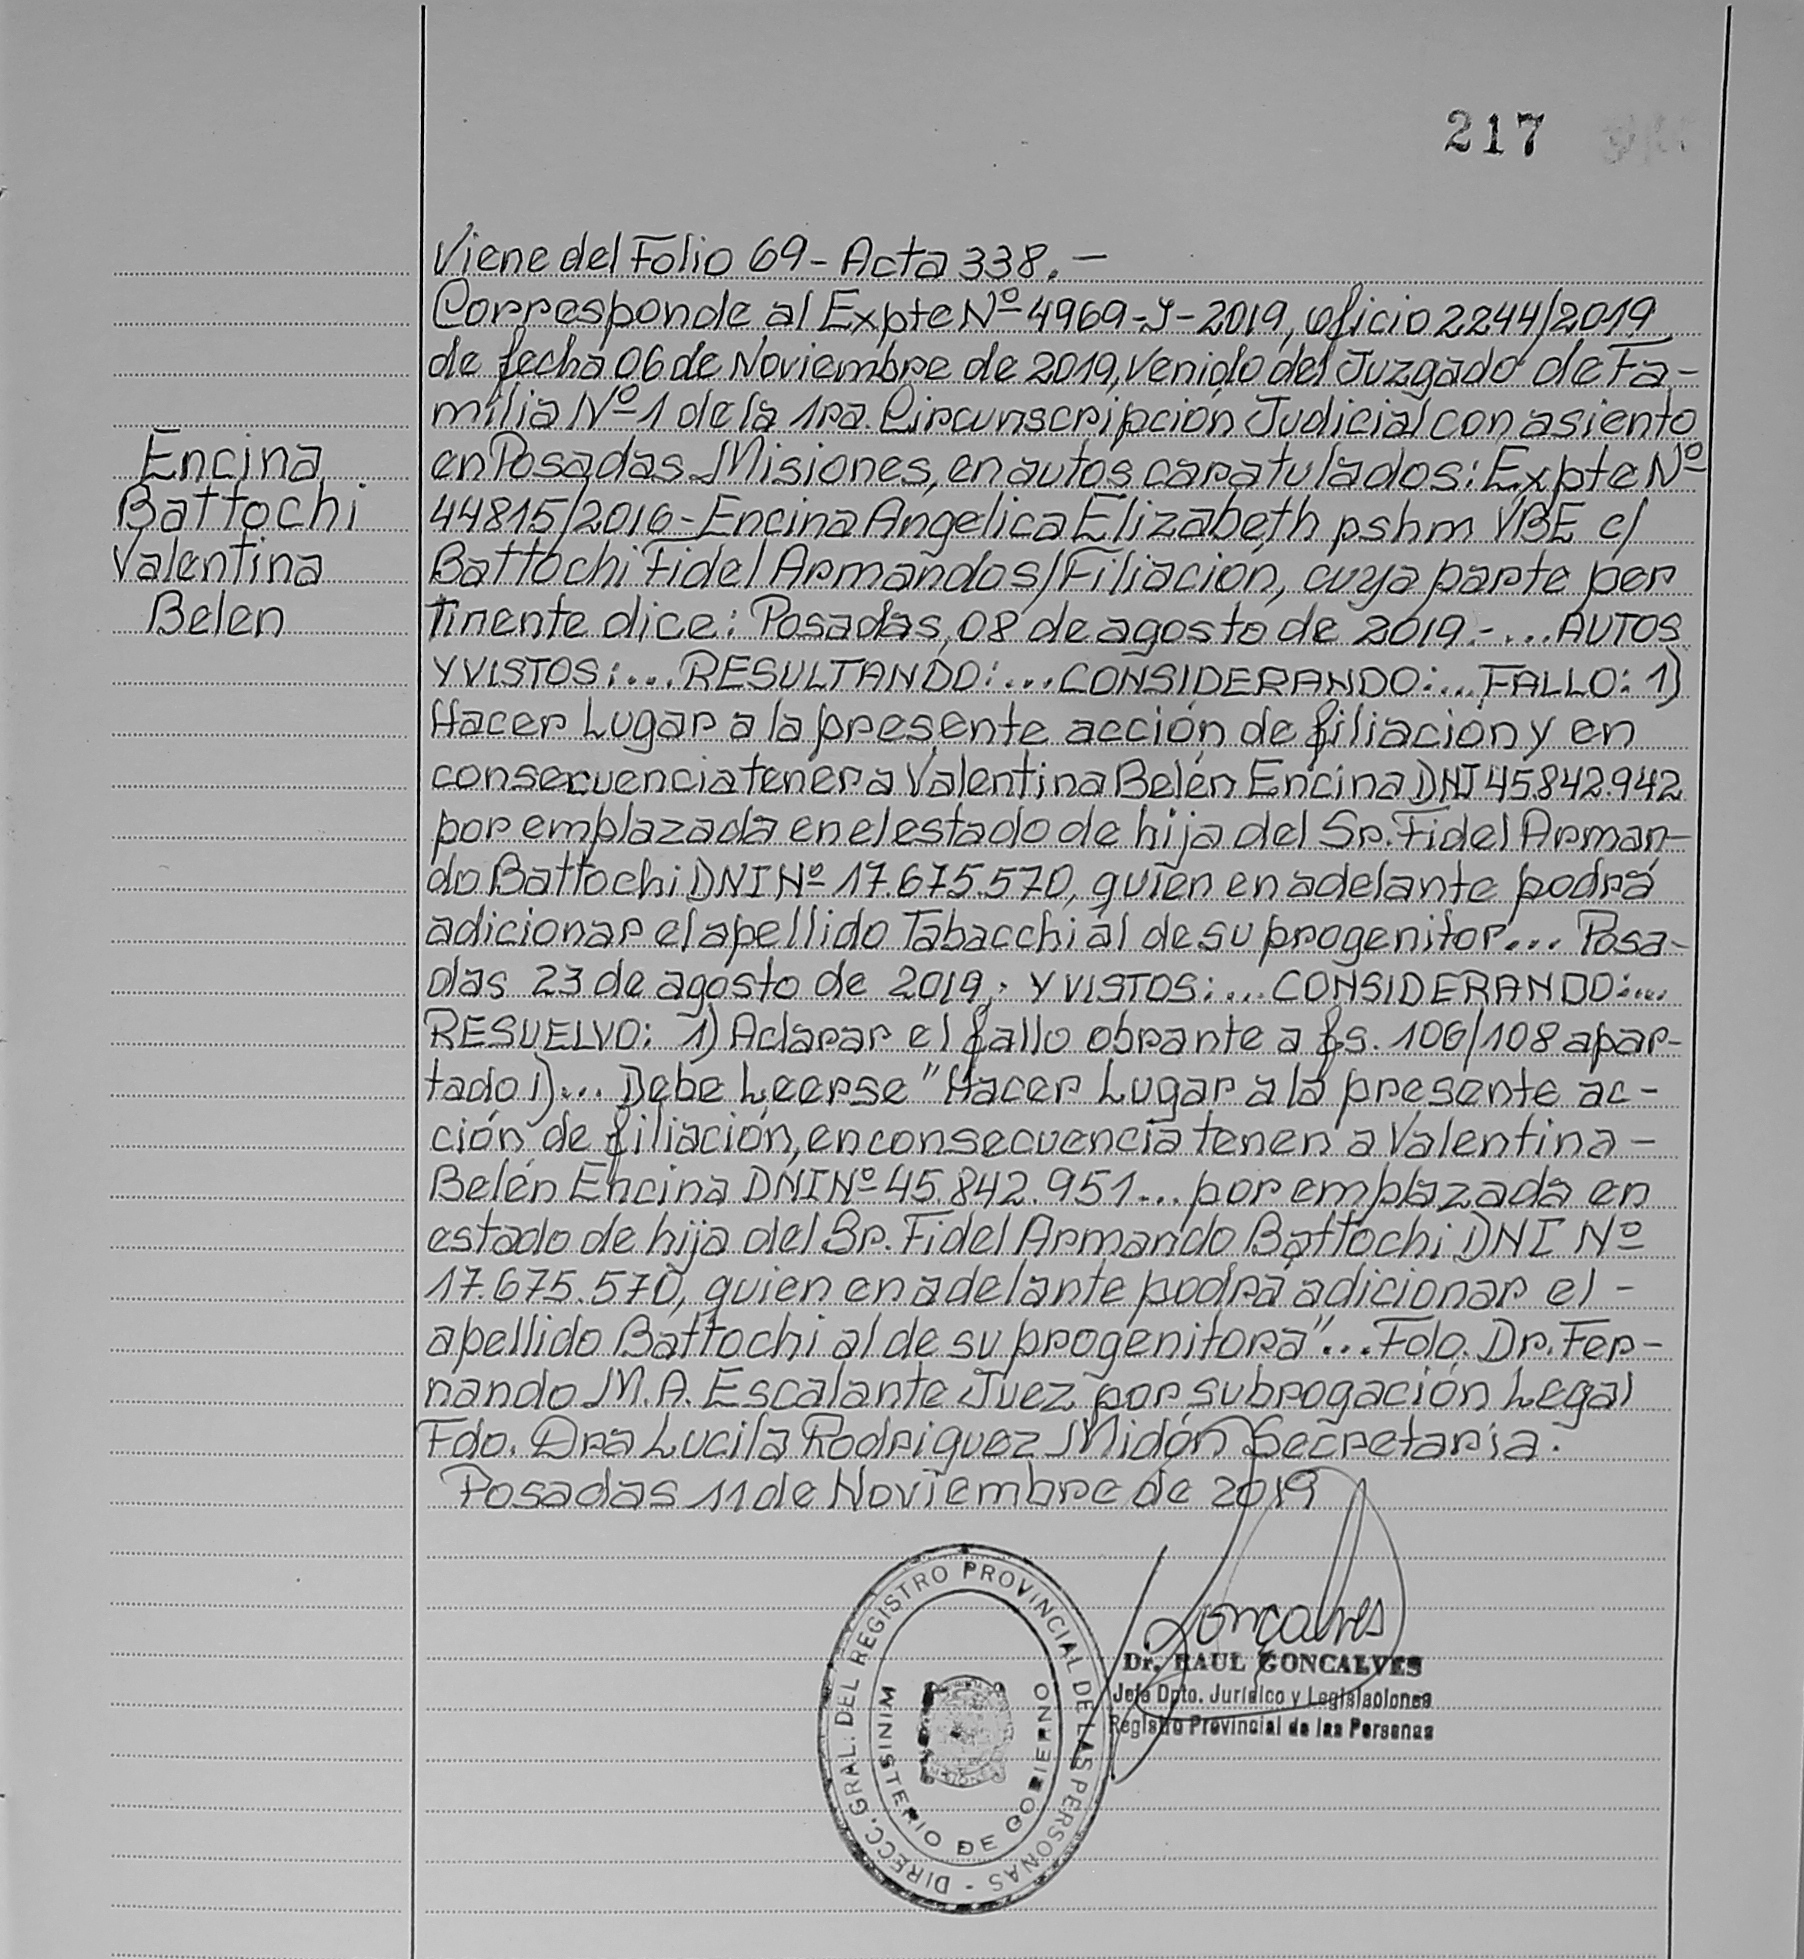 217
Viene del Folio 69 - Acta 338. -
Corresponde al Expte Nº 4969-J-2019, oficio 2244/2019
de fecha 06 de Noviembre de 2019, venido del Juzgado de Fa-
milia Nº 1 de la 1ra. Circunscripción Judicial con asiento
en Posadas Misiones, en autos caratulados: Expte Nº
44815/2016 - Encina Angelica Elizabeth pshm VBE c/
Battochi Fidel Armando s/Filiación, cuya parte per
tinente dice: Posadas, 08 de agosto de 2019.-... AUTOS
Y VISTOS:... RESULTANDO:... CONSIDERANDO:... FALLO: 1)
Hacer Lugar a la presente acción de filiación y en
consecuencia tener a Valentina Belén Encina DNI 45.842.942
por emplazada en el estado de hija del Sr. Fidel Arman-
do Battochi DNI Nº 17.675.570, quien en adelante podrá
adicionar el apellido Tabacchi al de su progenitor... Posa-
das 23 de agosto de 2019.- Y VISTOS:... CONSIDERANDO:...
RESUELVO: 1) Aclarar el fallo obrante a fs. 106/108 apar-
tado 1)... Debe Leerse "Hacer Lugar a la presente ac-
ción de filiación, en consecuencia tenen a Valentina -
Belén Encina DNI Nº 45.842.951... por emplazada en
estado de hija del Sr. Fidel Armando Battochi DNI Nº
17.675.570, quien en adelante podrá adicionar el -
apellido Battochi al de su progenitora"... Fdo. Dr. Fer-
nando M. A. Escalante Juez por subrogación Legal
Fdo. Dra Lucila Rodriguez Midón Secretaria.
Posadas 11 de Noviembre de 2019
Encina
Battochi
Valentina
Belen
DIRECC. GRAL. DEL REGISTRO PROVINCIAL DE LAS PERSONAS -
MINISTERIO DE GOBIERNO
MISIONES
Gonçalves
Dr. RAUL GONCALVES
Jefe Dpto. Jurídico y Legislaciones
Registro Provincial de las Personas